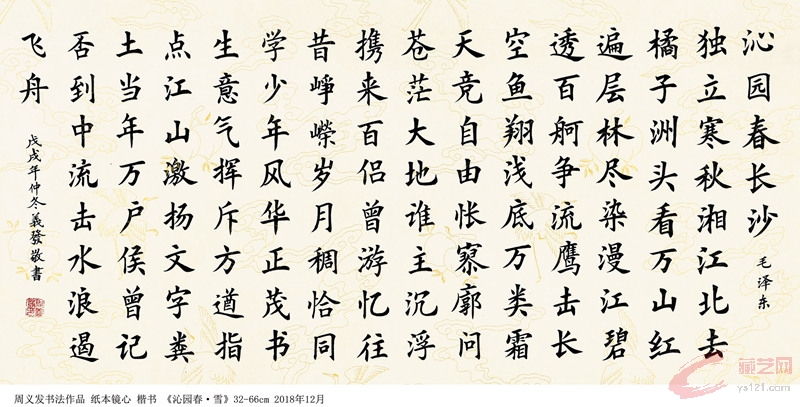 沁园春长沙
毛泽东
独立寒秋湘江北去
橘子洲头看万山红
遍层林尽染漫江碧
透百舸争流鹰击长
空鱼翔浅底万类霜
天竞自由怅寥廓问
苍茫大地谁主沉浮
携来百侣曾游忆往
昔峥嵘岁月稠恰同
学少年风华正茂书
生意气挥斥方遒指
点江山激扬文字粪
土当年万户侯曾记
否到中流击水浪遏
飞舟
戊戌年仲冬義發敬書
周义发书法作品 纸本镜心 楷书 《沁园春·雪》32-66cm 2018年12月
藏艺网
ys121.com